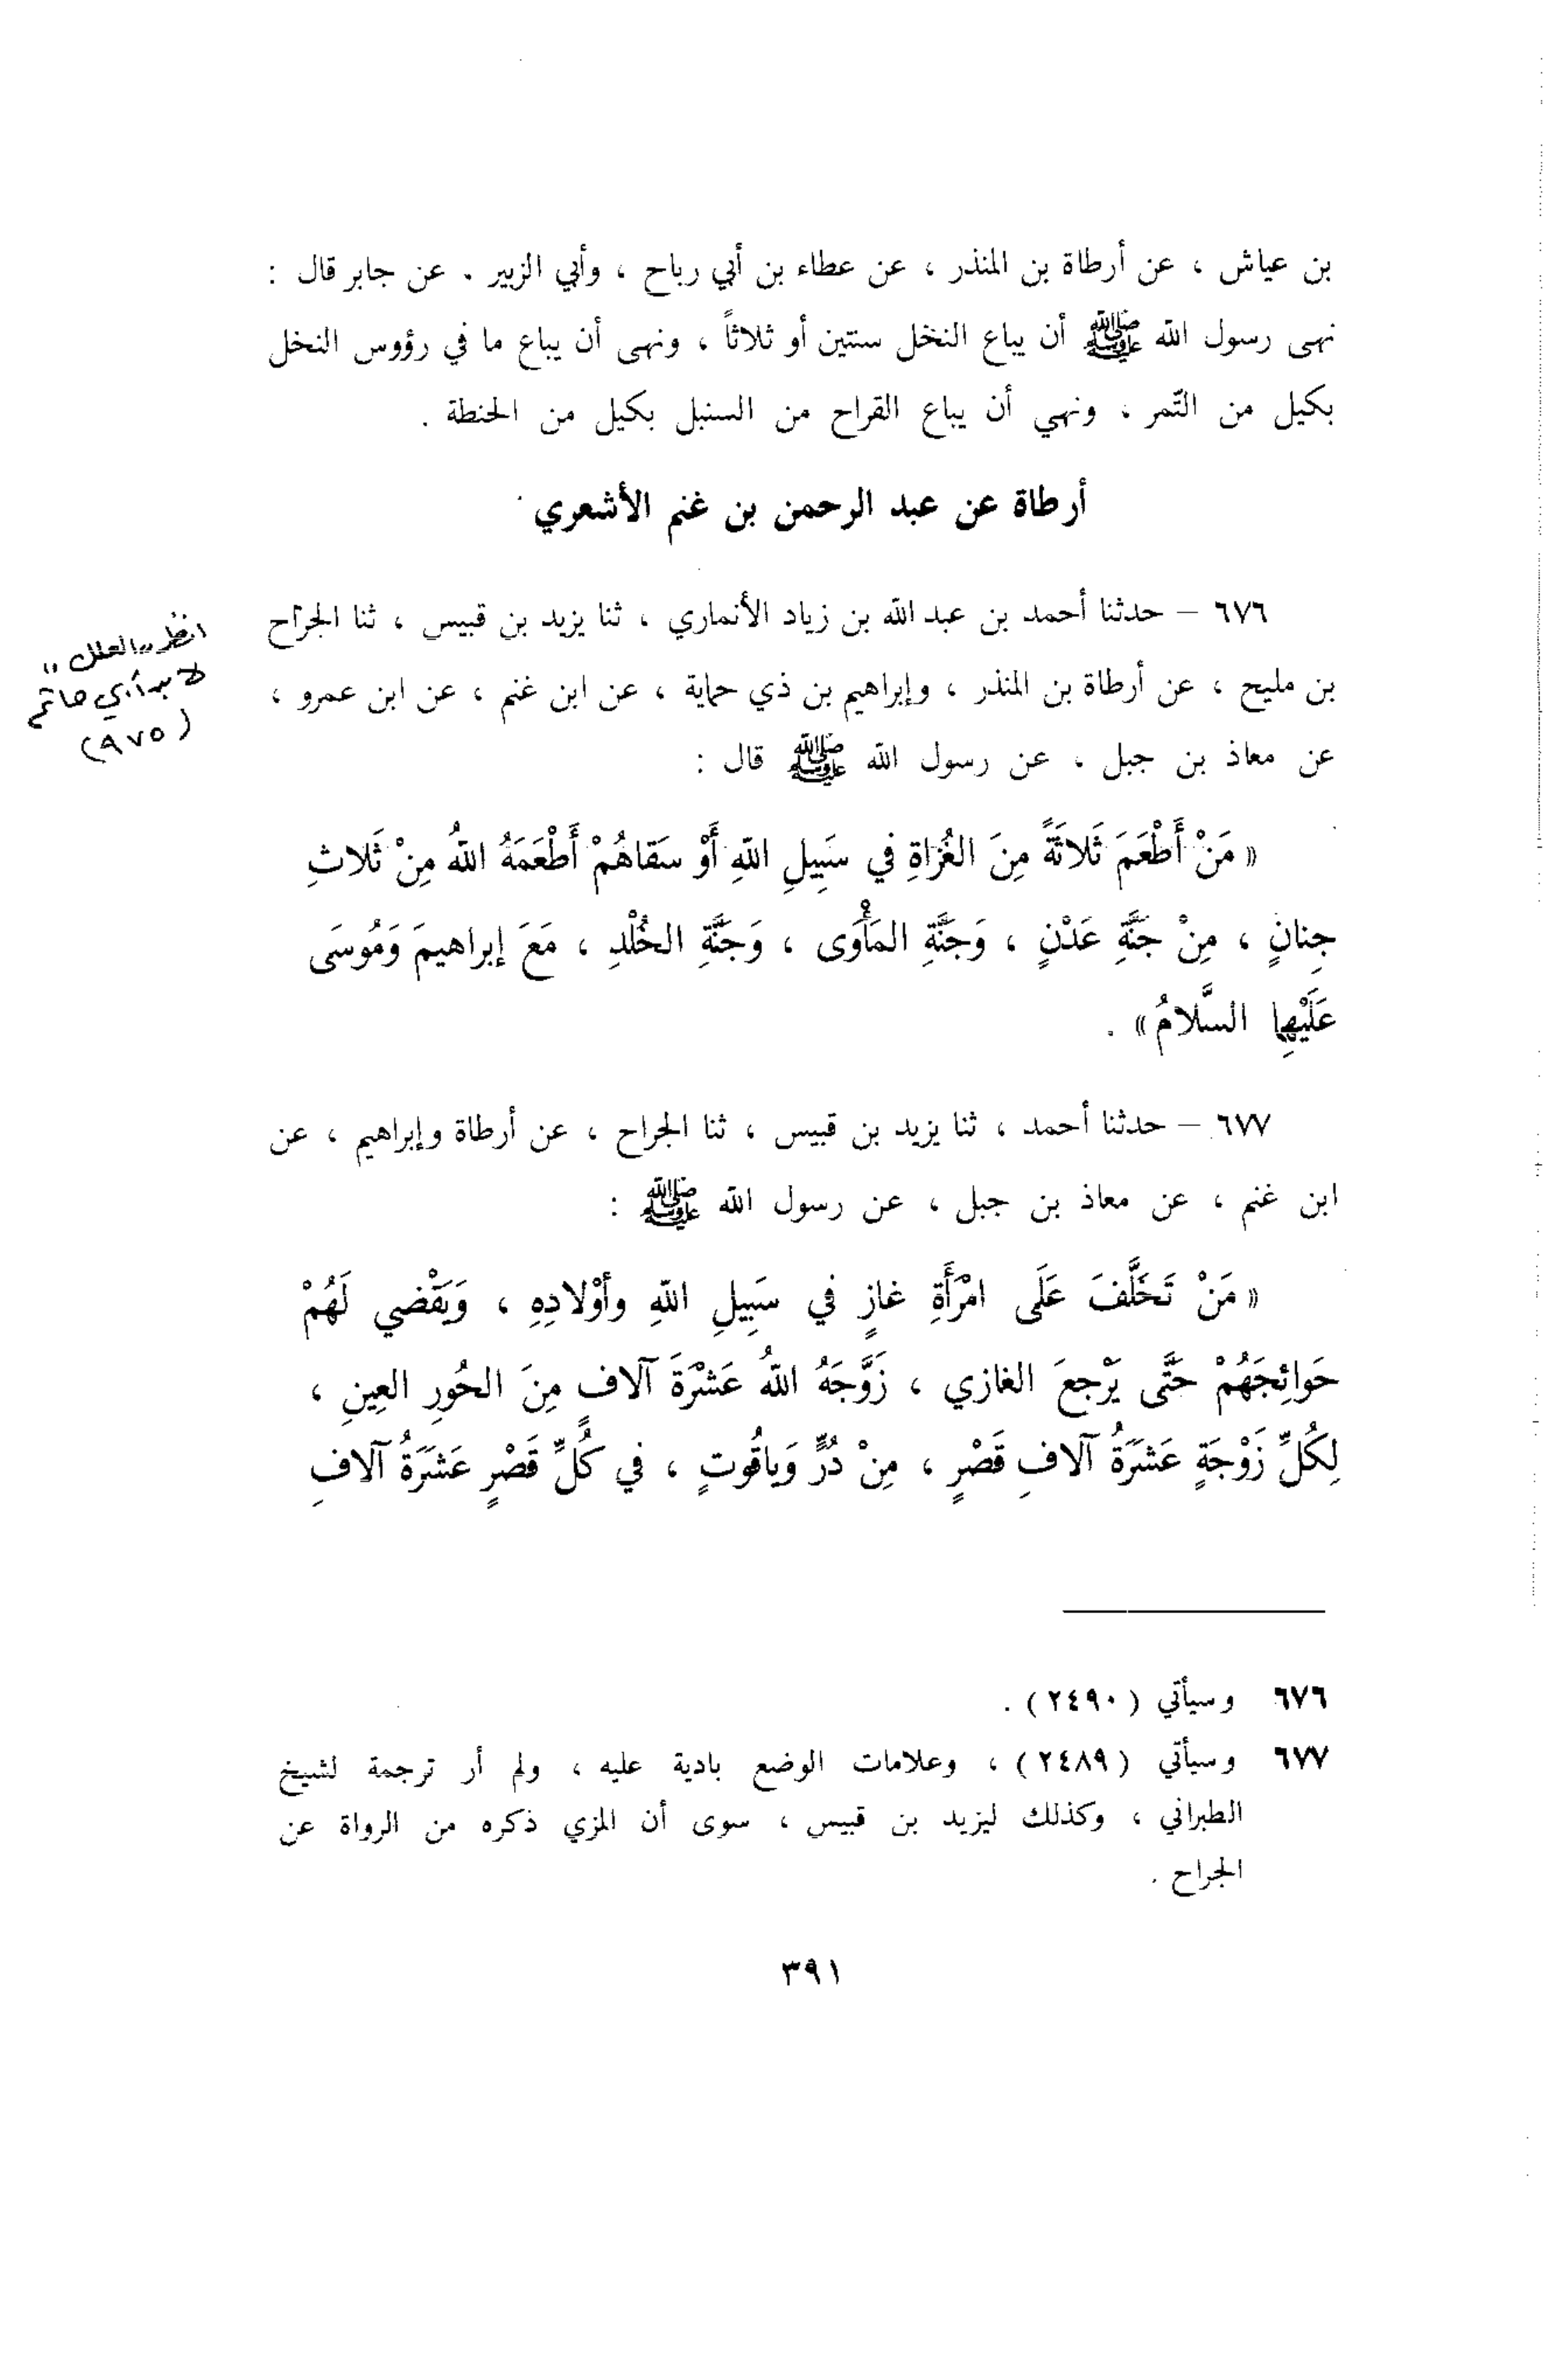 بن عياش ، عن أرطاة بن المنذر ، عن عطاء بن أبي رباح ، وأبي الزبير . عن جابر قال :
نهى رسول الله ﷺ أن يباع النخل سنتين أو ثلاثاً ، ونهى أن يباع ما في رؤوس النخل
بكيل من التّمر ، ونهي أن يباع القراح من السنبل بكيل من الحنطة .
أرطاة عن عبد الرحمن بن غنم الأشعري
٦٧٦ – حدثنا أحمد بن عبد الله بن زياد الأنماري ، ثنا يزيد بن قبيس ، ثنا الجراح
بن مليح ، عن أرطاة بن المنذر ، وإبراهيم بن ذي حماية ، عن ابن غنم ، عن ابن عمرو ،
عن معاذ بن جبل ، عن رسول الله ﷺ قال :
« مَنْ أَطْعَمَ ثَلاثَةً مِنَ الغُزاةِ في سَبِيلِ اللهِ أَوْ سَقاهُمْ أَطْعَمَهُ اللهُ مِنْ ثَلاثِ
جِنانٍ ، مِنْ جَنَّةِ عَدْنٍ ، وَجَنَّةِ المَأْوَى ، وَجَنَّةِ الخُلْدِ ، مَعَ إبراهيمَ وَمُوسَى
عَلَيْهِما السَّلامُ » .
انظر "العلل"
لابن أبي حاتم
(٩٧٥)
٦٧٧ – حدثنا أحمد ، ثنا يزيد بن قبيس ، ثنا الجراح ، عن أرطاة وإبراهيم ، عن
ابن غنم ، عن معاذ بن جبل ، عن رسول الله ﷺ :
« مَنْ تَخَلَّفَ عَلَى امْرَأَةِ غازٍ في سَبِيلِ اللهِ وأوْلادِهِ ، وَيَقْضي لَهُمْ
حَوائِجَهُمْ حَتَّى يَرْجعَ الغازي ، زَوَّجَهُ اللهُ عَشْرَةَ آلافٍ مِنَ الحُورِ العِينِ ،
لِكُلِّ زَوْجَةٍ عَشَرَةُ آلافِ قَصْرٍ ، مِنْ دُرٍّ وَياقُوتٍ ، في كُلِّ قَصْرٍ عَشَرَةُ آلافِ
٦٧٦ وسيأتي ( ٢٤٩٠ ) .
٦٧٧ وسيأتي ( ٢٤٨٩ ) ، وعلامات الوضع بادية عليه ، ولم أر ترجمة لشيخ
الطبراني ، وكذلك ليزيد بن قبيس ، سوى أن المزي ذكره من الرواة عن
الجراح .
٣٩١